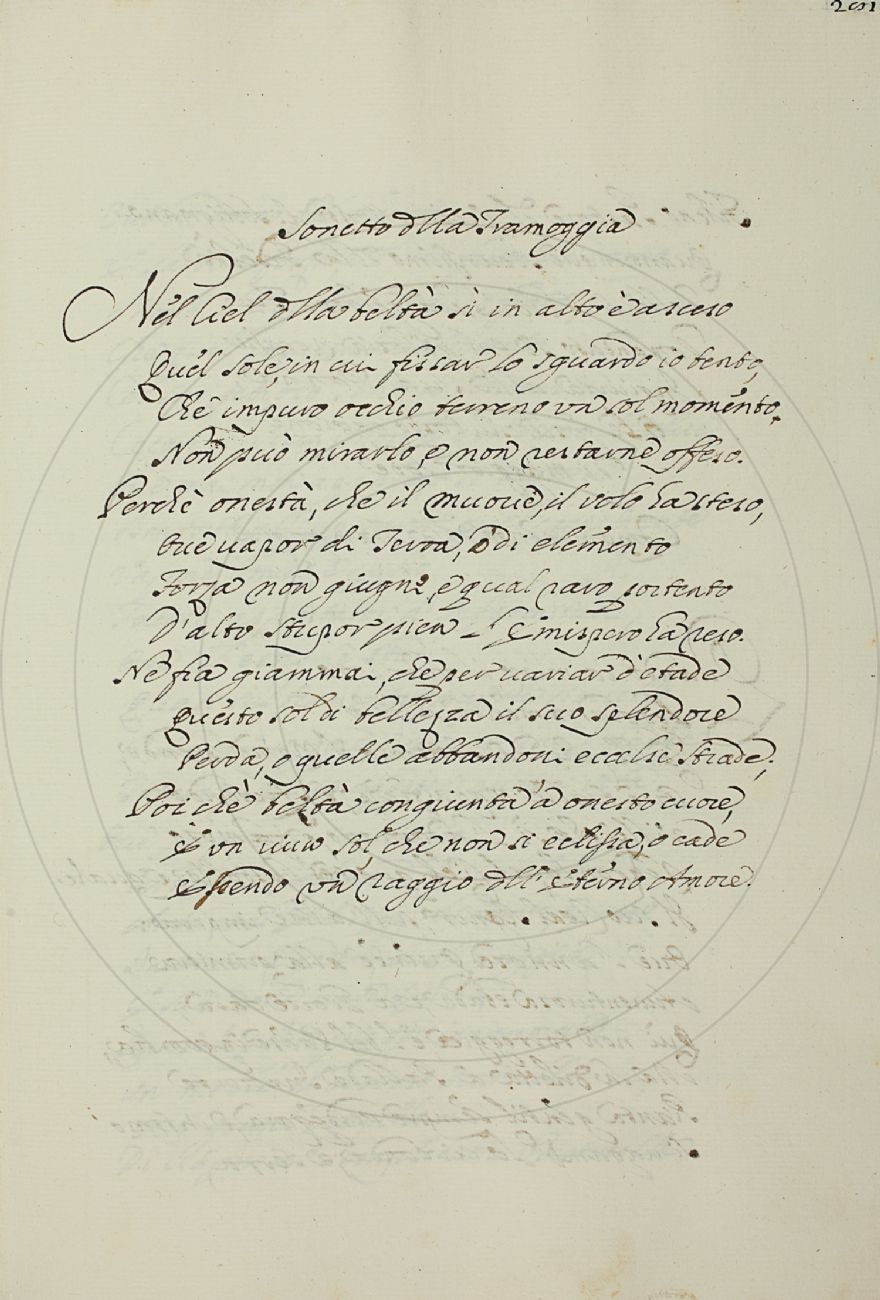 201
Sonetto dlla Tramoggia
Nel Ciel dlla beltà sì in alto è asceso
Quel sole, in cui fissar lo sguardo io tento,
Chè impuro occhio terreno un sol momento,
Non può mirarlo, e non restarne offeso.
Perchè onestà, che il muove, il volo ha steso,
Ove vapor di Terra, o di elemento
Forza non giugne, e qual raro portento
D'alto stupor pien l'Emispero ha reso.
Nè fia giammai, che per variar d'etade
Questo sol di bellezza il suo splendore
Perda, o quelle abbandoni eccelse strade;
Poichè beltà congiunta à onesto cuore,
È un vivo sol, che non si eclissa, o cade
Essendo un raggio dll' Eterno Amore.